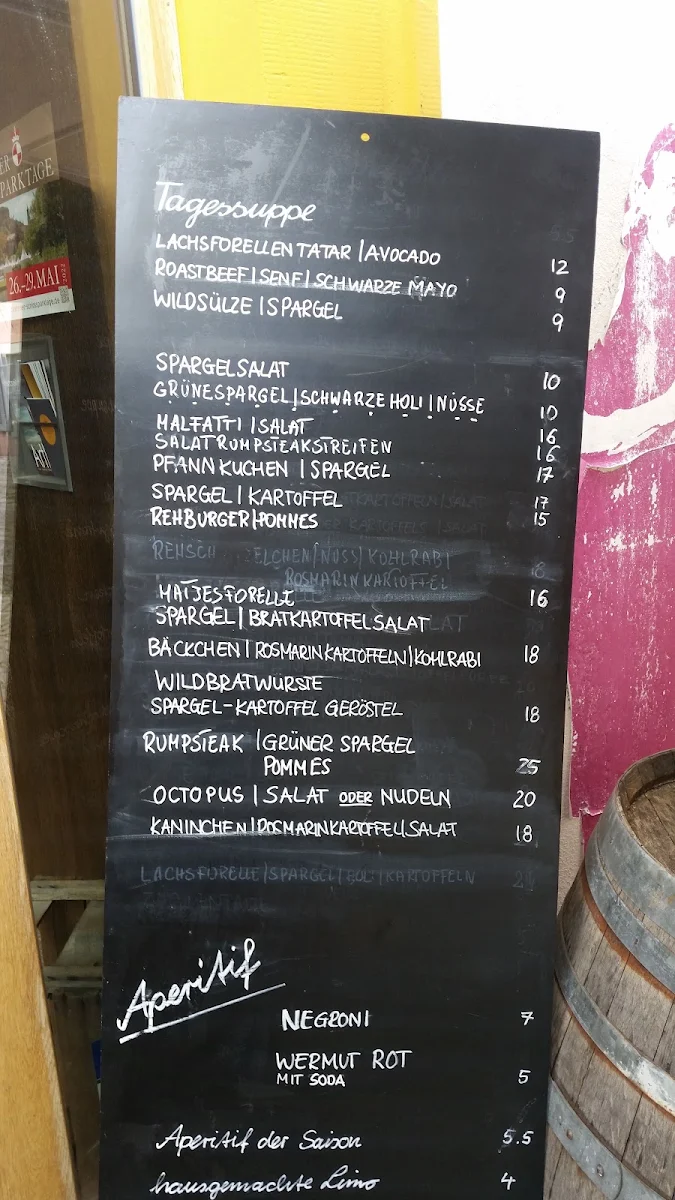 PARKTAGE
26.-29. MAI 2022
Tagessuppe
LACHSFORELLENTATAR | AVOCADO 12
ROASTBEEF | SENF | SCHWARZE MAYO 9
WILDSÜLZE | SPARGEL 9
SPARGELSALAT 10
GRÜNESPARGEL | SCHWARZE HOLI | NÜSSE 10
MALFATTI | SALAT 16
SALAT RUMPSTEAKSTREIFEN 16
PFANNKUCHEN | SPARGEL 17
SPARGEL | KARTOFFEL 17
REHBURGER | POMMES 15
ROSMARINKARTOFFEL
MATJESFORELLE 16
SPARGEL | BRATKARTOFFELSALAT
BÄCKCHEN | ROSMARINKARTOFFELN | KOHLRABI 18
WILDBRATWÜRSTE
SPARGEL-KARTOFFEL GERÖSTEL 18
RUMPSTEAK | GRÜNER SPARGEL
POMMES 25
OCTOPUS | SALAT ODER NUDELN 20
KANINCHEN | ROSMARINKARTOFFEL | SALAT 18
LACHSFORELLE | SPARGEL | HOLI | KARTOFFELN
Aperitif
NEGRONI 7
WERMUT ROT
MIT SODA 5
Aperitif der Saison 5.5
hausgemachte Limo 4